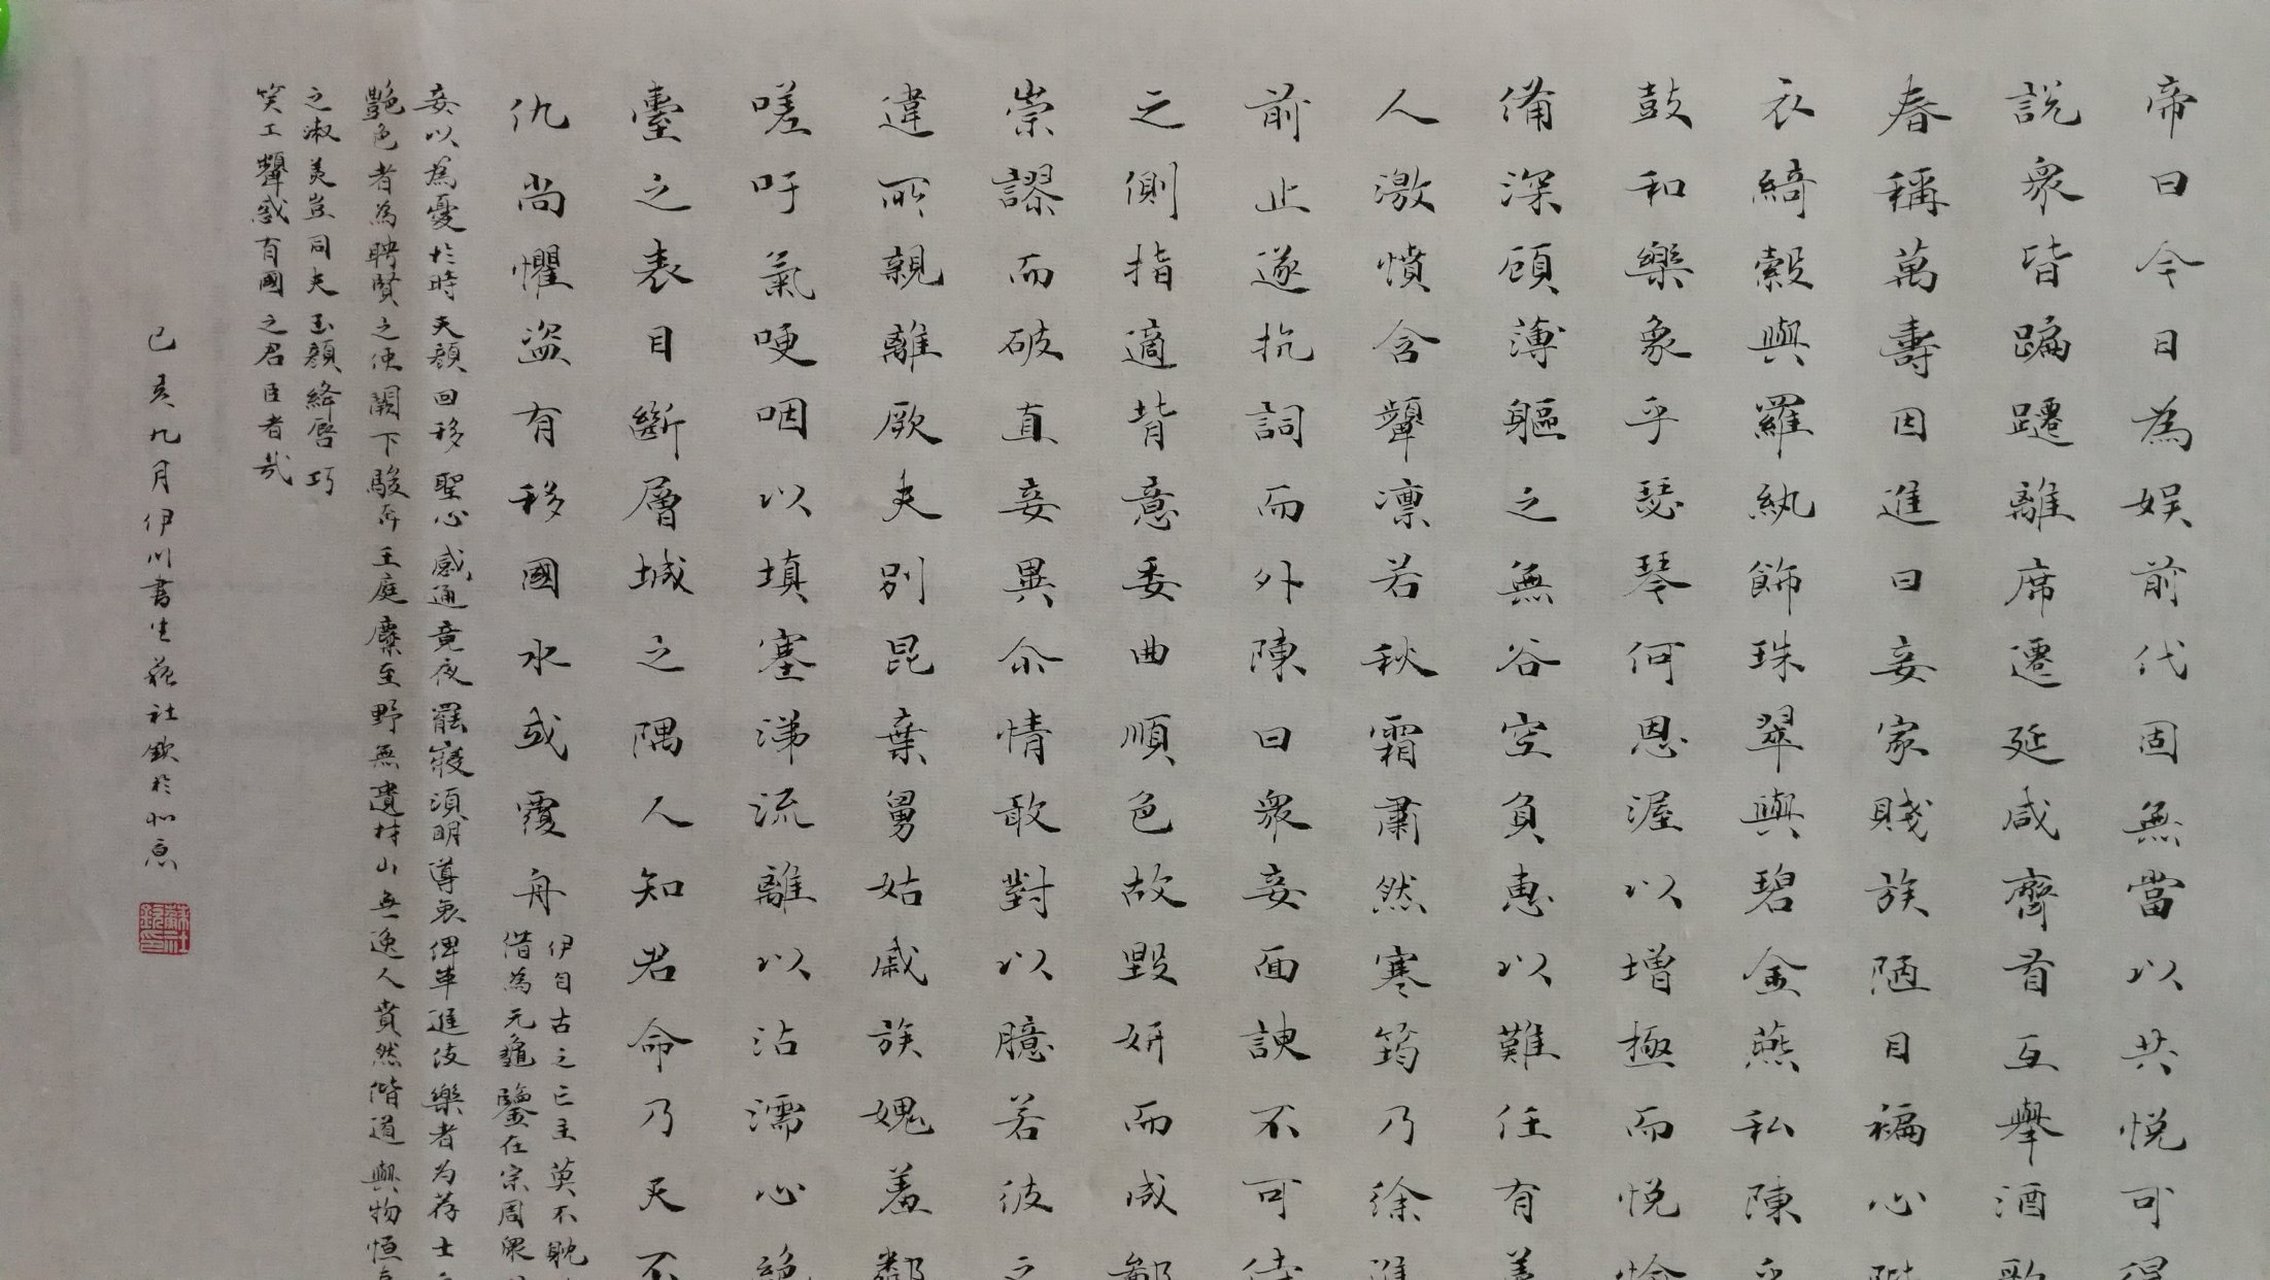 帝曰今日為娱前代固無當以共悦可得
説衆皆蹁躚離席遷延咸齊首互舉酒歌
春稱萬壽因進曰妾家賤族陋目褊心
衣綺縠與羅紈飾珠翠與碧金燕私陳
鼓和樂象乎瑟琴何恩渥以增極而悦愉
備深顧薄軀之無谷空負惠以難任有美
人激憤含顰凛若秋霜肅然寒筠乃徐進
前止遂抗詞而外陳曰衆妾面諛不可
之側指適背意委曲順色故毀妍而成鄙
崇謬而破直妾異尒情敢對以臆若彼之
違所親離厥夫別昆棄舅姑戚族媿羞鄰
嗟吁氣哽咽以填塞涕流離以沾濡心絶
臺之表目斷層城之隅人知君命乃天不
仇尚懼盗有移國水或覆舟
伊自古之亡主莫不耽
借為元龜鑒在宗周
妾以為憂於時天顔回移聖心感通竟夜罷寢須明導衷俾車進伎樂者为荐士
艷色者為聘賢之使闕下駿奔王庭麋至野無遺材山無逸人賁然偕道興物恒
之淑美豈同夫玉顔絳唇巧
笑工顰惑有國之君臣者哉
己亥九月伊川書生蘇社欽於
蘇社欽印